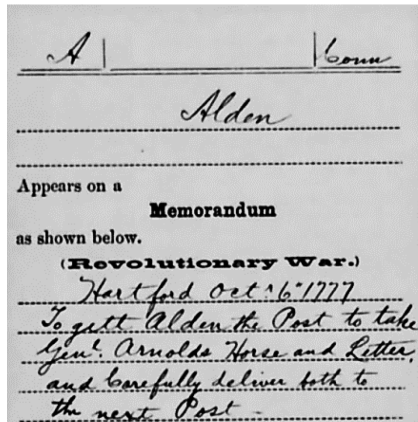 A Conn
Alden
Appears on a
Memorandum
as shown below.
(Revolutionary War.)
Hartford Oct. 6" 1777
To gett Alden the Post to take
Genl. Arnolds Horse and Letter,
and Carefully deliver both to
the next Post -